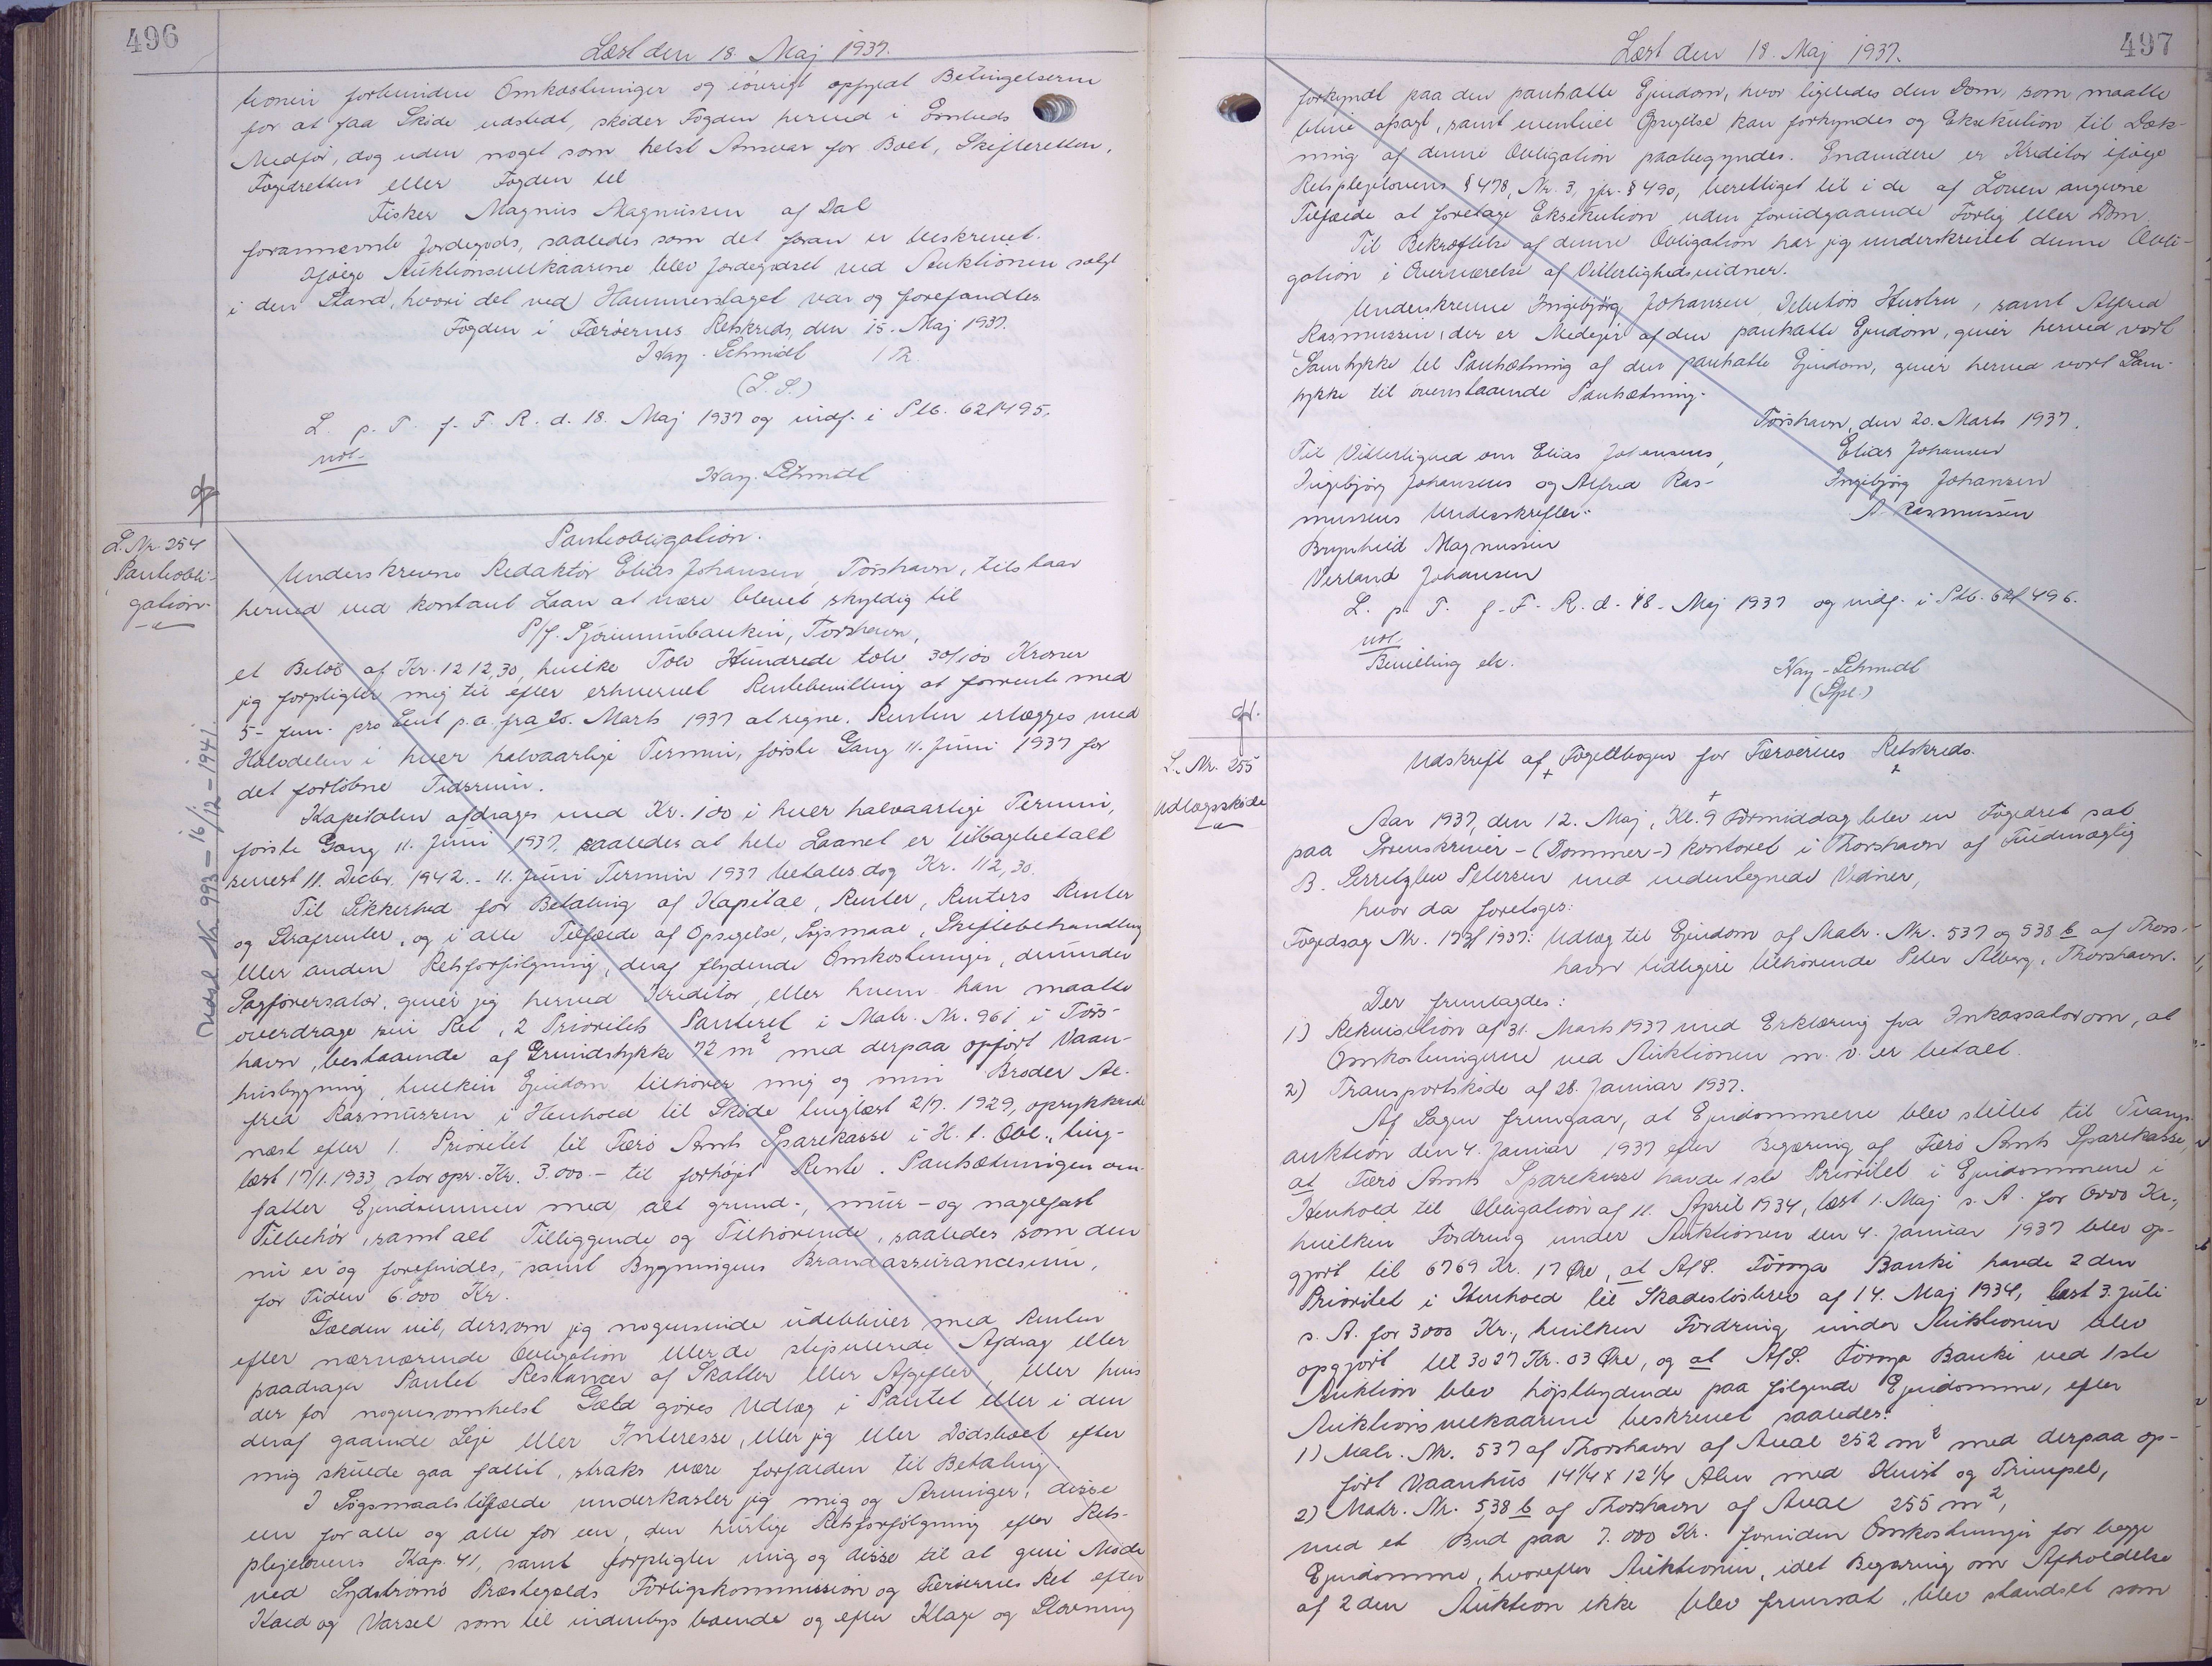 496
Læst den 18. Maj 1937.
tionen forbundne Omkostninger og iøvrigt opfyldt Betingelserne
for at faa Skøde udstedt, skøder Fogden herved i Embeds
Medfør, dog uden noget som helst Ansvar for Boet, Skifteretten,
Fogedretten eller Fogden til
Fisker Magnus Magnussen af Dal
forannævnte Jordegods, saaledes som det foran er beskrevet.
Ifølge Auktionsvilkaarene blev Jordegodset ved Auktionen solgt
i den Stand, hvori det ved Hammerslaget var og forefandtes
Fogden i Færøernes Retskreds, den 15. Maj 1937.
Hay-Schmidt / Th.
(L. S.)
L. p. T. f. F. R. d. 18. Maj 1937 og indf. i Ptb. 62/495.
Hay-Schmidt
L. Nr. 254
Pantobli-
gation.
Pantobligation.
Underskrevne Redaktør Elias Johansen, Tórshavn, tilstaar
herved ved kontant Laan at være blevet skyldig til
P/f. Sjóvinnubankin, Torshavn,
et Beløb af Kr. 1212,30, hvilke Tolv Hundrede tolv 30/100 Kroner
jeg forpligter mig til efter erhvervet Rentebevilling at forrente med
5 - fem - pro Cent p.a. fra 20. Marts 1937 at regne. Renten erlægges med
Halvdelen i hver halvaarlige Termin, første Gang 11. Juni 1937 for
det forløbne Tidsrum.
Kapitalen afdrages med Kr. 100 i hver halvaarlige Termin,
første Gang 11. Juni 1937, saaledes at hele Laanet er tilbagebetalt
senest 11. Decbr. 1942. - 11. Juni Termin 1937 betales dog Kr. 112,30.
Til Sikkerhed for Betaling af Kapital, Renter, Renters Renter
og Strafrenter, og i alle Tilfælde af Opsigelse, Søgsmaal, Skiftebehandling
eller anden Retsforfølgning, deraf flydende Omkostninger, derunder
Sagførersalær, giver jeg herved Kreditor, eller hvem han maatte
overdrage sin Ret, 2 Prioritets Panteret i Matr. Nr. 961 i Tórs-
havn, bestaaende af Grundstykke 72 m² med derpaa opført Vaan-
husbygning, hvilken Ejendom tilhører mig og min Broder Al-
fred Rasmussen i Henhold til Skøde tinglæst 2/7. 1929, oprykkende
næst efter 1. Prioritet til Færø Amts Sparekasse i H. t. Obl., ting-
læst 17/1. 1933, stor opr. Kr. 3.000 - til forhøjet Rente. Pantsætningen om-
fatter Ejendommen med alt grund-, mur- og nagelfast
Tilbehør, samt alt Tilliggende og Tilhørende, saaledes som den
nu er og forefindes, samt Bygningens Brandassurancesum,
for Tiden 6.000 Kr.
Gælden vil, dersom jeg nogensinde udebliver med Renten
efter nærværende Obligation eller de stipulerede Afdrag eller
paadrager Pantet Restancer af Skatter eller Afgifter, eller hvis
der for nogensomhelst Gæld gøres Udlæg i Pantet eller i den
deraf gaaende Leje eller Interesse, eller jeg eller Dødsboet efter
mig skulde gaa fallit, straks være forfalden til Betaling.
I Søgsmaalstilfælde underkaster jeg mig og Arvinger, disse
een for alle og alle for een, den hurtige Retsforfølgning efter Rets-
plejelovens Kap. 41, samt forpligter mig og disse til at give Møde
ved Sydstrømø Præstegælds Forligskommission og Færøernes Ret efter
Kald og Varsel som til indenbys boende og efter Klage og Stævning
Udsl. Nr. 993 - 16/12 - 1941.
497
Læst den 18. Maj 1937.
forkyndt paa den pantsatte Ejendom, hvor ligeledes den Dom, som maatte
blive afsagt, samt eventuel Opsigelse kan forkyndes og Eksekution til Dæk-
ning af denne Obligation paabegyndes. Endvidere er Kreditor ifølge
Retsplejelovens § 478, Nr. 3, jfr. § 490, berettiget til i de af Loven angivne
Tilfælde at foretage Eksekution uden forudgaaende Forlig eller Dom.
Til Bekræftelse af denne Obligation har jeg underskrevet denne Obli-
gation i Overværelse af Vitterlighedsvidner.
Underskrevne Ingibjørg Johansen, Debitors Hustru, samt Alfred
Rasmussen, der er Medejer af den pantsatte Ejendom, giver herved vort
Samtykke til Pantsætning af den pantsatte Ejendom, giver herved vort Sam-
tykke til ovenstaaende Pantsætning.
Tórshavn, den 20. Marts 1937.
Til Vitterlighed om Elias Johansens, Elias Johansen
Ingibjørg Johansens og Alfred Ras- Ingibjørg Johansen
mussens Underskrifter: A. Rasmussen
Brynhild Magnussen
Verland Johansen
L. p. T. f. F. R. d. 18. Maj 1937 og indf. i Ptb. 62/496.
Bevilling
Hay-Schmidt
L. Nr. 255
Udlægsskøde
Udskrift af Fogedbogen for Færøernes Retskreds.
Aar 1937, den 12. Maj, Kl. 9 Formiddag blev en Fogedret sat
paa Sorenskriver - (Dommer-) kontoret i Thorshavn af Fuldmægtig
B. Petersen med undertegnede Vidner,
hvor da foretoges:
Fogedsag Nr. 1937: Udlæg til Ejendom af Matr. Nr. 537 og 538 b af Thors-
havn tidligere tilhørende Peter Alberg, Thorshavn.
Der fremlagdes:
1) Rekvisition af 31. Marts 1937 med Erklæring fra Inkassator om, at
Omkostningerne ved Auktionen m. v. er betalt.
2) Transportskøde af 28. Januar 1937.
Af Sagen fremgaar, at Ejendommene blev stillet til Tvangs-
auktion den 4. Januar 1937 efter Begæring af Færø Amts Sparekasse,
at Færø Amts Sparekasse havde 1ste Prioritet i Ejendommene i
Henhold til Obligation af 11. April 1934, læst 1. Maj s. A. for 6000 Kr.,
hvilken Fordring under Auktionen den 4. Januar 1937 blev op-
gjort til 6769 Kr. 17 Øre, at A/S. Føroya Banki havde 2den
Prioritet i Henhold til Skadesløsbrev af 14. Maj 1934, læst 3. Juli
s. A. for 3000 Kr., hvilken Fordring under Auktionen blev
opgjort til 3027 Kr. 03 Øre, og at A/S. Føroya Banki ved 1ste
Auktion blev højstbydende paa følgende Ejendomme, efter
Auktionsvilkaarene beskrevet saaledes:
1) Matr. Nr. 537 af Thorshavn af Areal 252 m² med derpaa op-
ført Vaanhus 14¼ x 12¼ Alen med Kvist og Trimpel,
2) Matr. Nr. 538 b af Thorshavn af Areal 255 m²,
med et Bud paa 7.000 Kr. foruden Omkostninger for begge
Ejendomme, hvorefter Auktionen, idet Begæring om Afholdelse
af 2den Auktion ikke blev fremsat, blev standset som